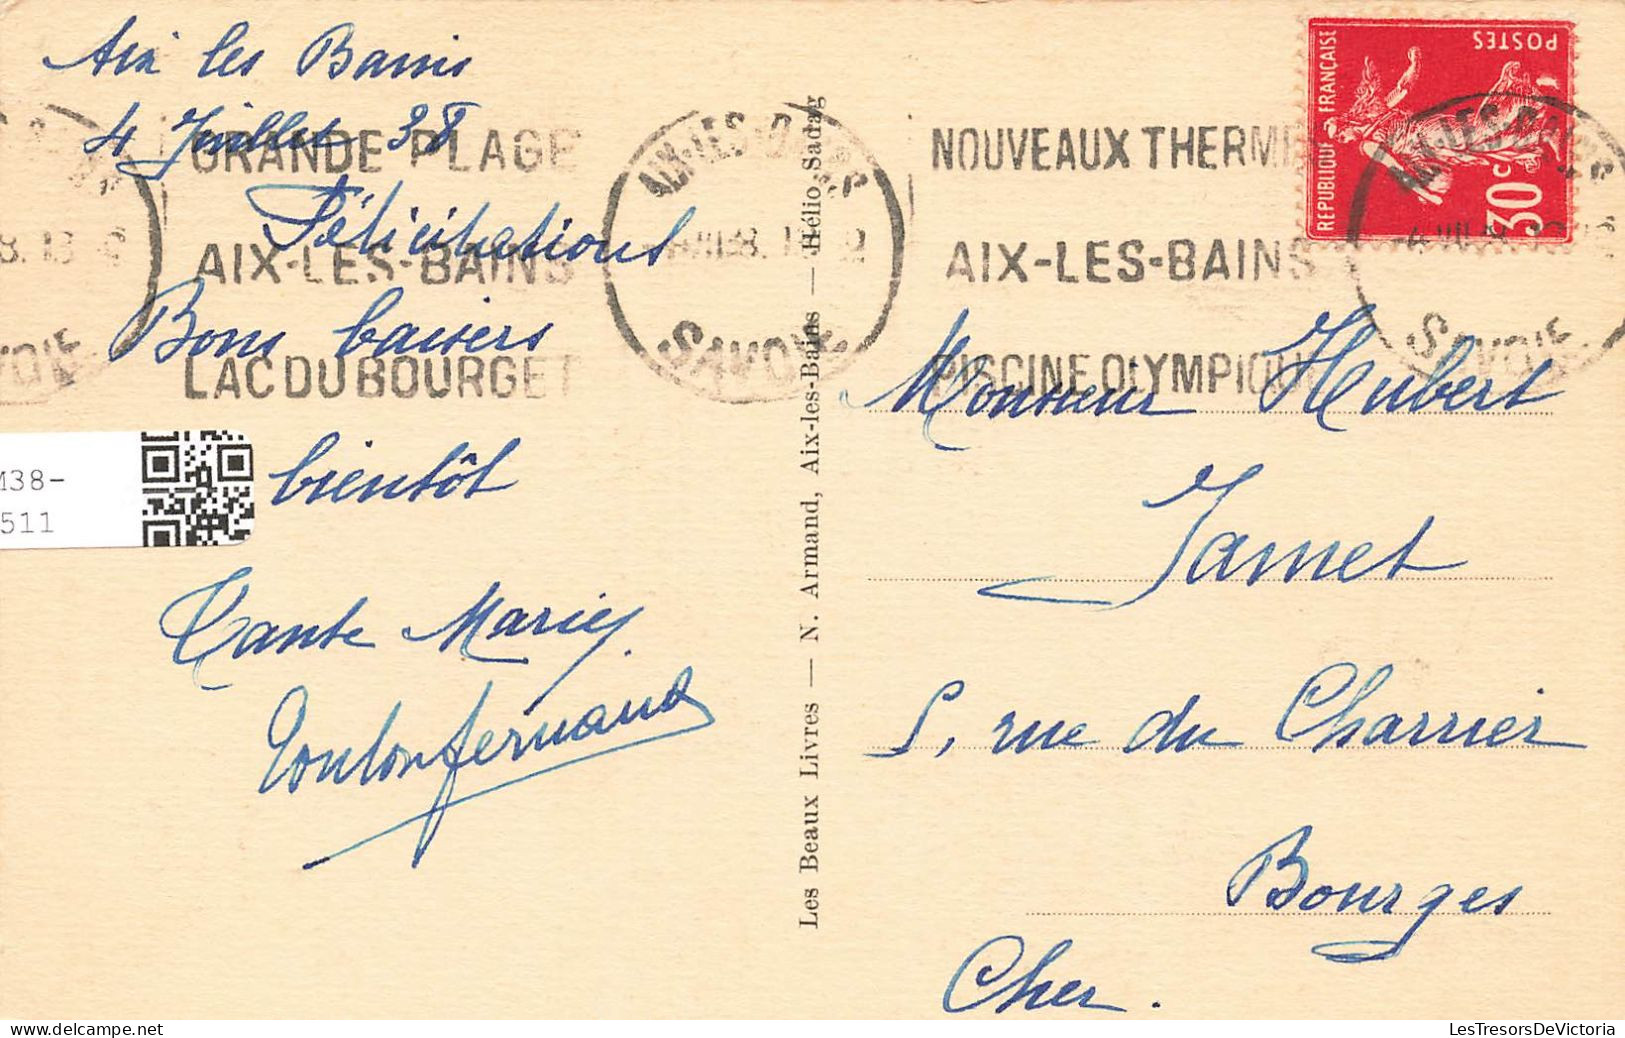 Aix les Bains
4 Juillet 38
Félicitations
Bons baisers
bientôt
Tante Marie
GRANDE PLAGE
AIX-LES-BAINS
LAC DU BOURGET
AIX-LES-BAINS
SAVOIE
NOUVEAUX THERM
AIX-LES-BAINS
PISCINE OLYMPIQU
AIX-LES-BAINS
SAVOIE
RÉPUBLIQUE FRANÇAISE
POSTES
30c
Les Beaux Livres — N. Armand, Aix-les-Bains — Hélio Sadag
Monsieur Hubert
Jamet
5, rue du Charrier
Bourges
Cher.
M38-
511
LesTresorsDeVictoria (delcampe.net)